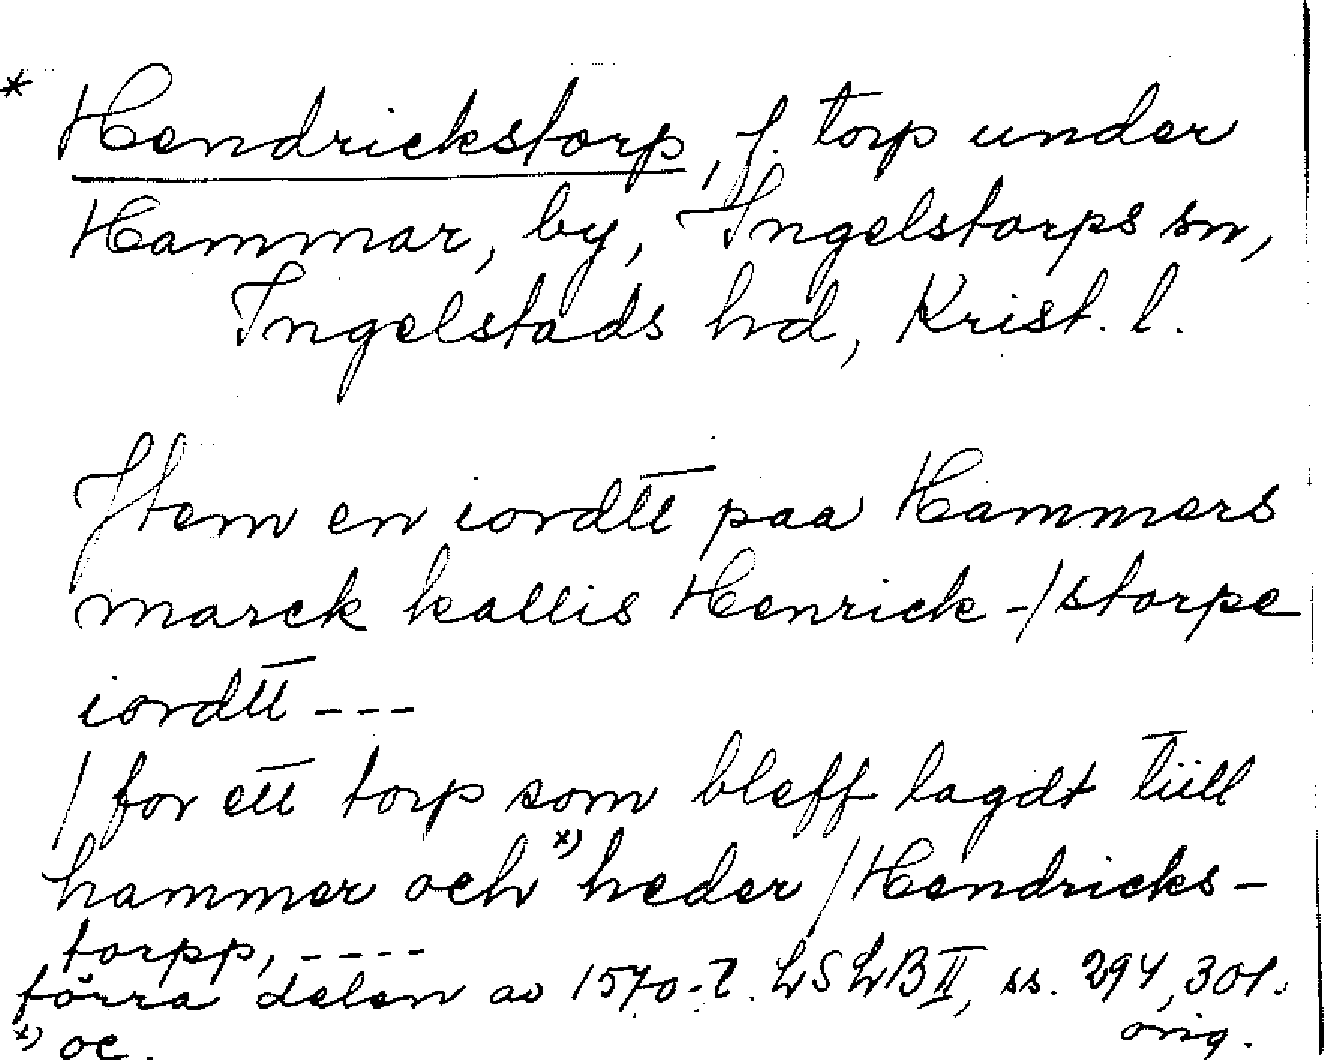 * Hendrickstorp, f. torp under
Hammar, by, Ingelstorps sn,
Ingelstads hd, Krist. l.
Jtem en iordtt paa Hammers
marck kallis Henrick-/storpe
iordtt ---
/ for ett torp som bleff lagdt tiill
hammer och x) heder / Hendricks-
torpp, ----
förra delen av 1570-t. LSLB II, ss. 294, 301.
orig.
x) oc.